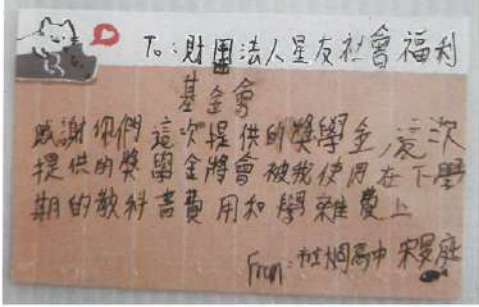 To:財團法人星友社會福利
基金會
感謝你們這次提供的獎學金,這次
提供的獎學金將會被我使用在下學
期的教科書費用和學雜費上
From:桐高中 宋旻庭